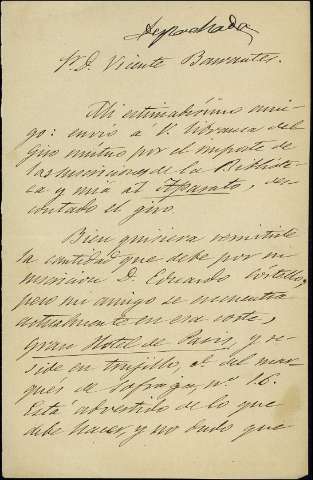 Despachada
Sr. D. Vicente Barrantes.
Mi estimadísimo ami-
go: envío a V. libranza del
Giro mutuo por el importe de
las suscriciones de la Bibliote-
ca y mía al Aparato, des-
contado el giro.
Bien quisiera remitirle
la cantidad que debe por su
suscricion D. Eduardo
pero mi amigo se encuentra
actualmente en esa corte,
Gran Hotel de Paris, y re-
side en Trujillo, c. del mar-
qués de Sofraga, nº 16.
Está advertido de lo que
debe hacer, y no dudo que